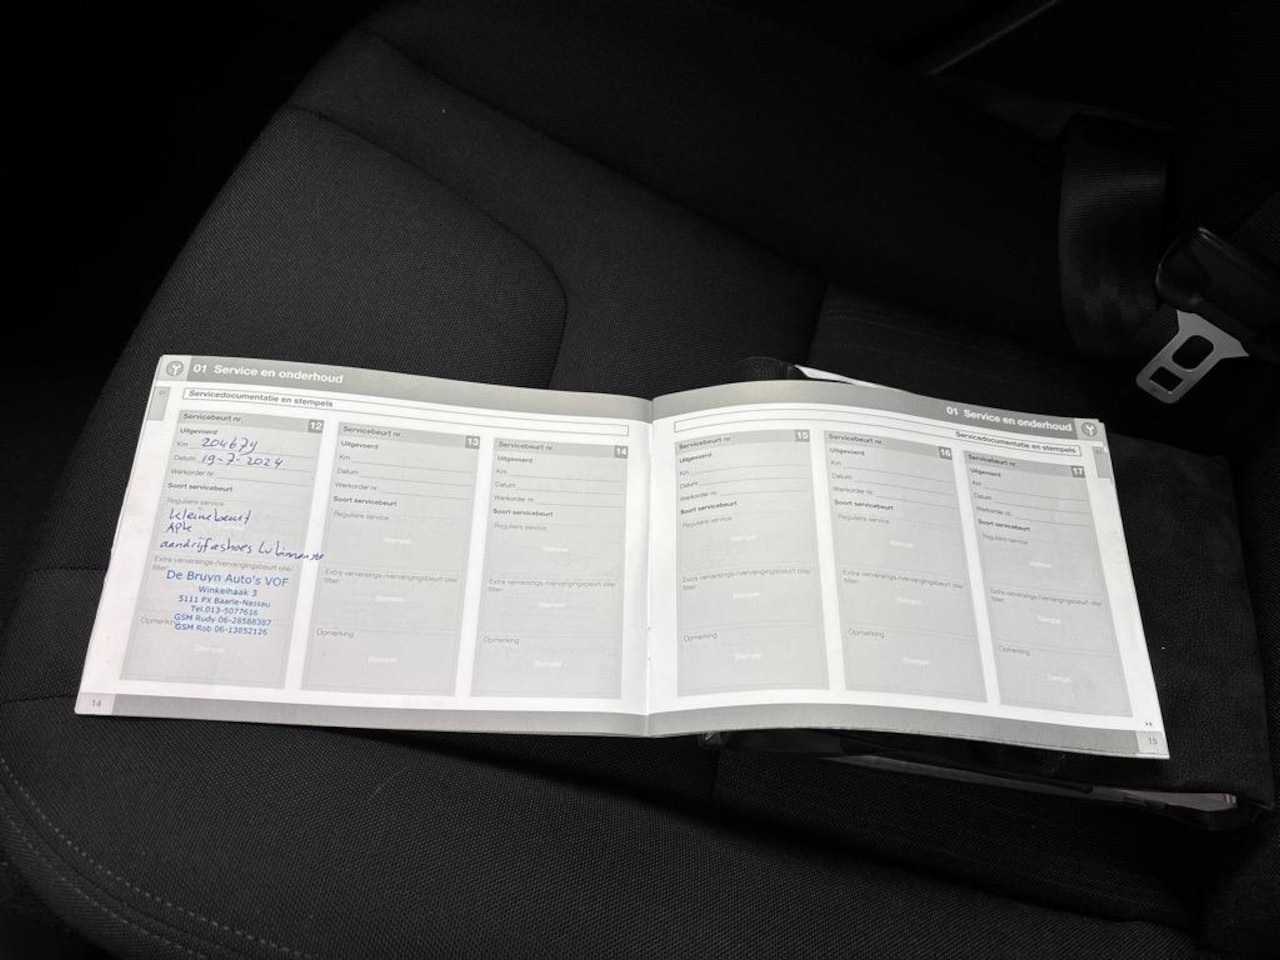 01 Service en onderhoud
Servicedocumentatie en stempels
Servicebeurt nr. 12
Uitgevoerd
Km 204674
Datum 19-7-2024
Werkorder nr.
Soort servicebeurt
Reguliere service
kleine beurt
APK
aandrijfashoes Lv binnenste
Extra verversings-/vervangingsbeurt olie/
filter
De Bruyn Auto's VOF
Winkelhaak 3
5111 PX Baarle-Nassau
Tel.013-5077616
GSM Rudy 06-28588387
GSM Rob 06-13852126
Opmerking
Stempel
14
Servicebeurt nr. 13
Uitgevoerd
Km
Datum
Werkorder nr.
Soort servicebeurt
Reguliere service
Stempel
Extra verversings-/vervangingsbeurt olie/
filter
Stempel
Opmerking
Stempel
Servicebeurt nr. 14
Uitgevoerd
Km
Datum
Werkorder nr.
Soort servicebeurt
Reguliere service
Stempel
Extra verversings-/vervangingsbeurt olie/
filter
Stempel
Opmerking
Stempel
01 Service en onderhoud
Servicedocumentatie en stempels
Servicebeurt nr. 15
Uitgevoerd
Km
Datum
Werkorder nr.
Soort servicebeurt
Reguliere service
Stempel
Extra verversings-/vervangingsbeurt olie/
filter
Stempel
Opmerking
Stempel
Servicebeurt nr. 16
Uitgevoerd
Km
Datum
Werkorder nr.
Soort servicebeurt
Reguliere service
Stempel
Extra verversings-/vervangingsbeurt olie/
filter
Stempel
Opmerking
Stempel
Servicebeurt nr. 17
Uitgevoerd
Km
Datum
Werkorder nr.
Soort servicebeurt
Reguliere service
Stempel
Extra verversings-/vervangingsbeurt olie/
filter
Stempel
Opmerking
Stempel
15